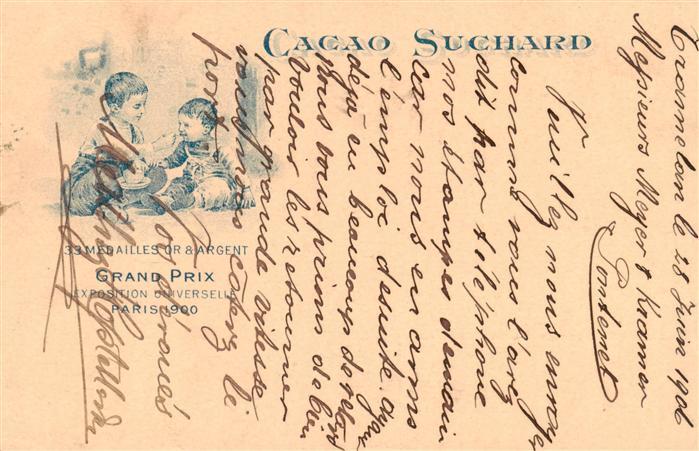 CACAO SUCHARD
33 MÉDAILLES OR & ARGENT
GRAND PRIX
EXPOSITION UNIVERSELLE
PARIS 1900
Tramelan le 28 Juin 1906
Messieurs Meyer & Kramer
Pontenet
Veuillez nous envoyer
comme nous l'avez
dit par téléphone
nos étampes demain
car nous en avons
l'emploi desuite. Ayant
déjà eu beaucoup de retard
nous vous prions de bien
vouloir les retourner
par grande vitesse
nous vous
port.
Vos dévoués